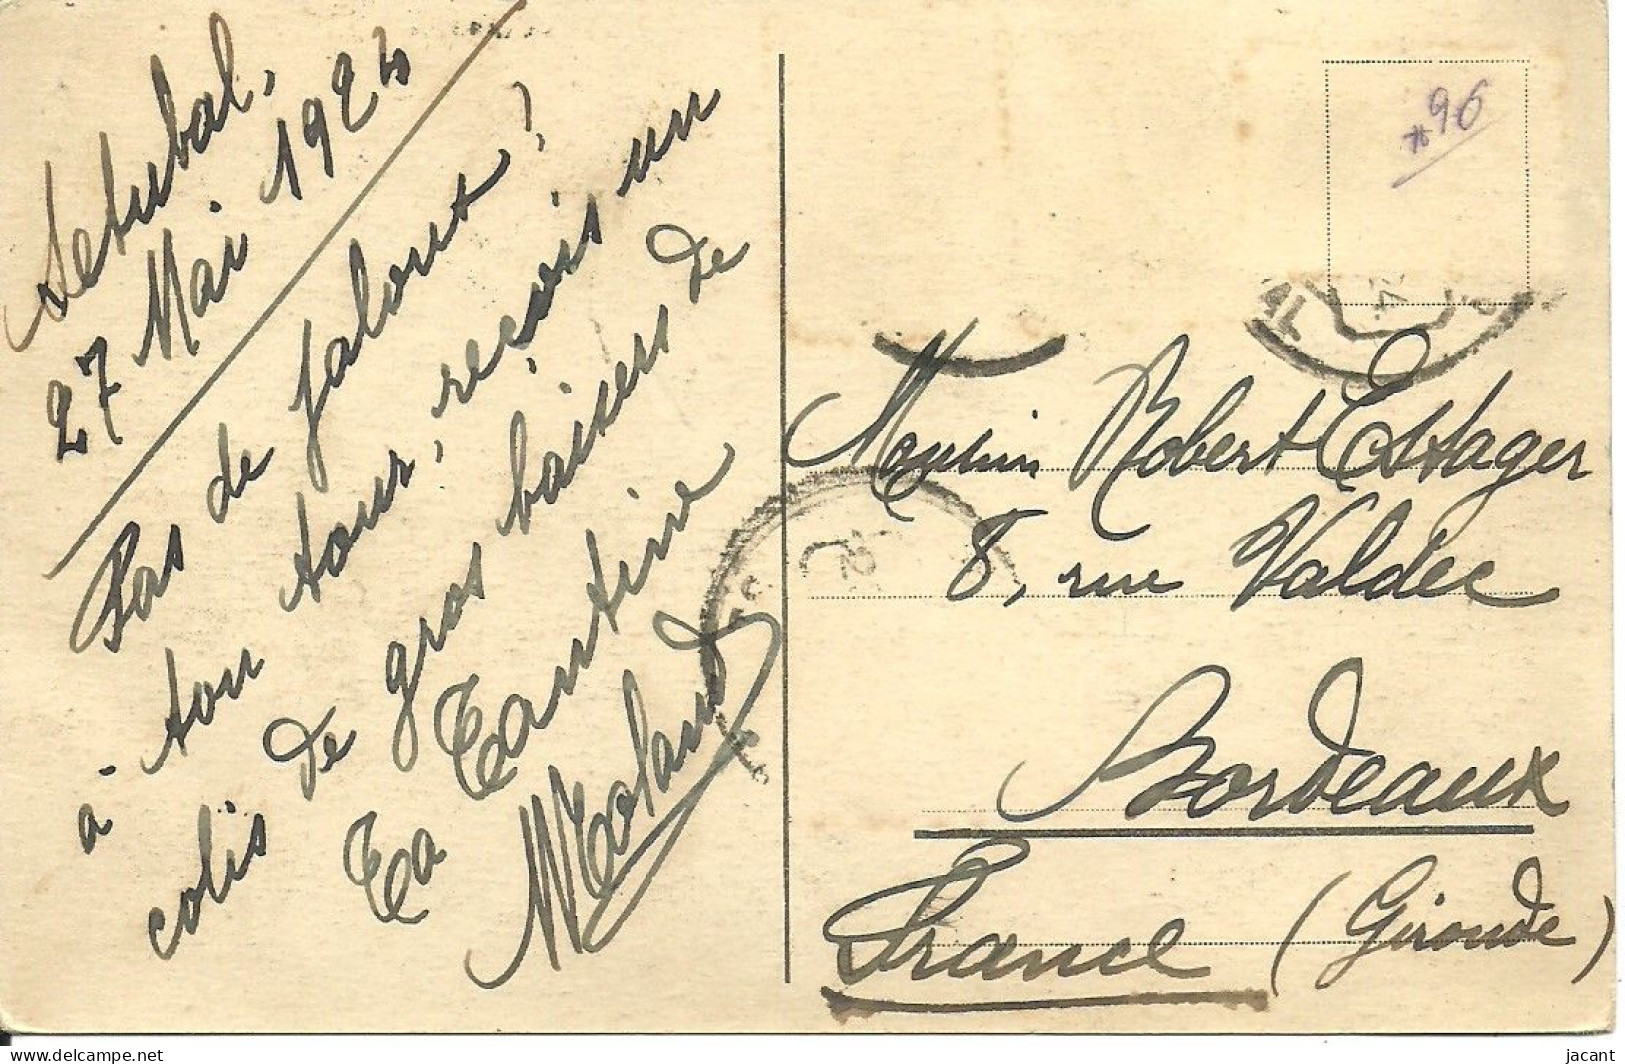 Setubal,
27 Mai 1924
Pas de jaloux!
à ton tour, reçois un
colis de gros baisers de
Ta Tantine
*96
AL
Robert Estager
8, rue Valdec
Bordeaux
France (Gironde)
delcampe.net
jacant